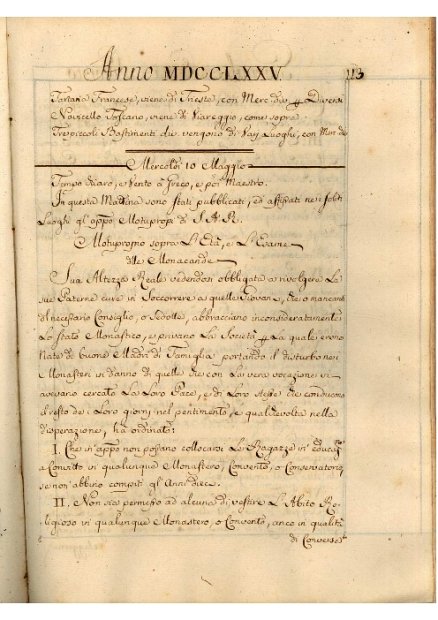 Anno MDCCLXXV. 113
Tartana Francese, viene di Trieste, con Merc. div. p Diversi
Navicello Toscano, viene di Viareggio, come sopra
Tre piccoli Bastimenti che vengono di Varj Luoghi, con Mer. div.
Mercoldì 10 Maggio
Tempo chiaro, e Vento a Greco, e poi Maestro.
In questa Mattina sono stati pubblicati, ed affissi nei soliti
Luoghi gl'appo Motuprop. di S.A.R.
Motuproprio sopra L'Età, e L'Esame
delle Monacande
Sua Altezza Reale vedendosi obbligata a rivolgere Le
sue Paterne cure in Soccorrere a quelle Giovani, che o mancanti
del necessario Consiglio, o sedotte, abbracciano inconsideratamente
Lo stato Monastico, e privano La Società p La quale erono
Nate di buone Madri di Famiglia portando il disturbo nei
Monasteri in danno di quelle che con La vera vocazione vi
avevano cercato La Loro Pace, e di Loro stesse che conducono
il resto dei Loro giorni nel pentimento, e qualchevolta nella
disperazione, ha ordinato:
I. Che in appo non possano collocarsi Le Ragazze in educaz.
a Convitto in qualunque Monastero, Convento, o Conservatorio,
se non abbino compiti gl'Anni dieci.
II. Non sia permesso ad alcuna di vestire L'Abito Re-
ligioso in qualunque Monastero, o Convento, anco in qualità
di Converse